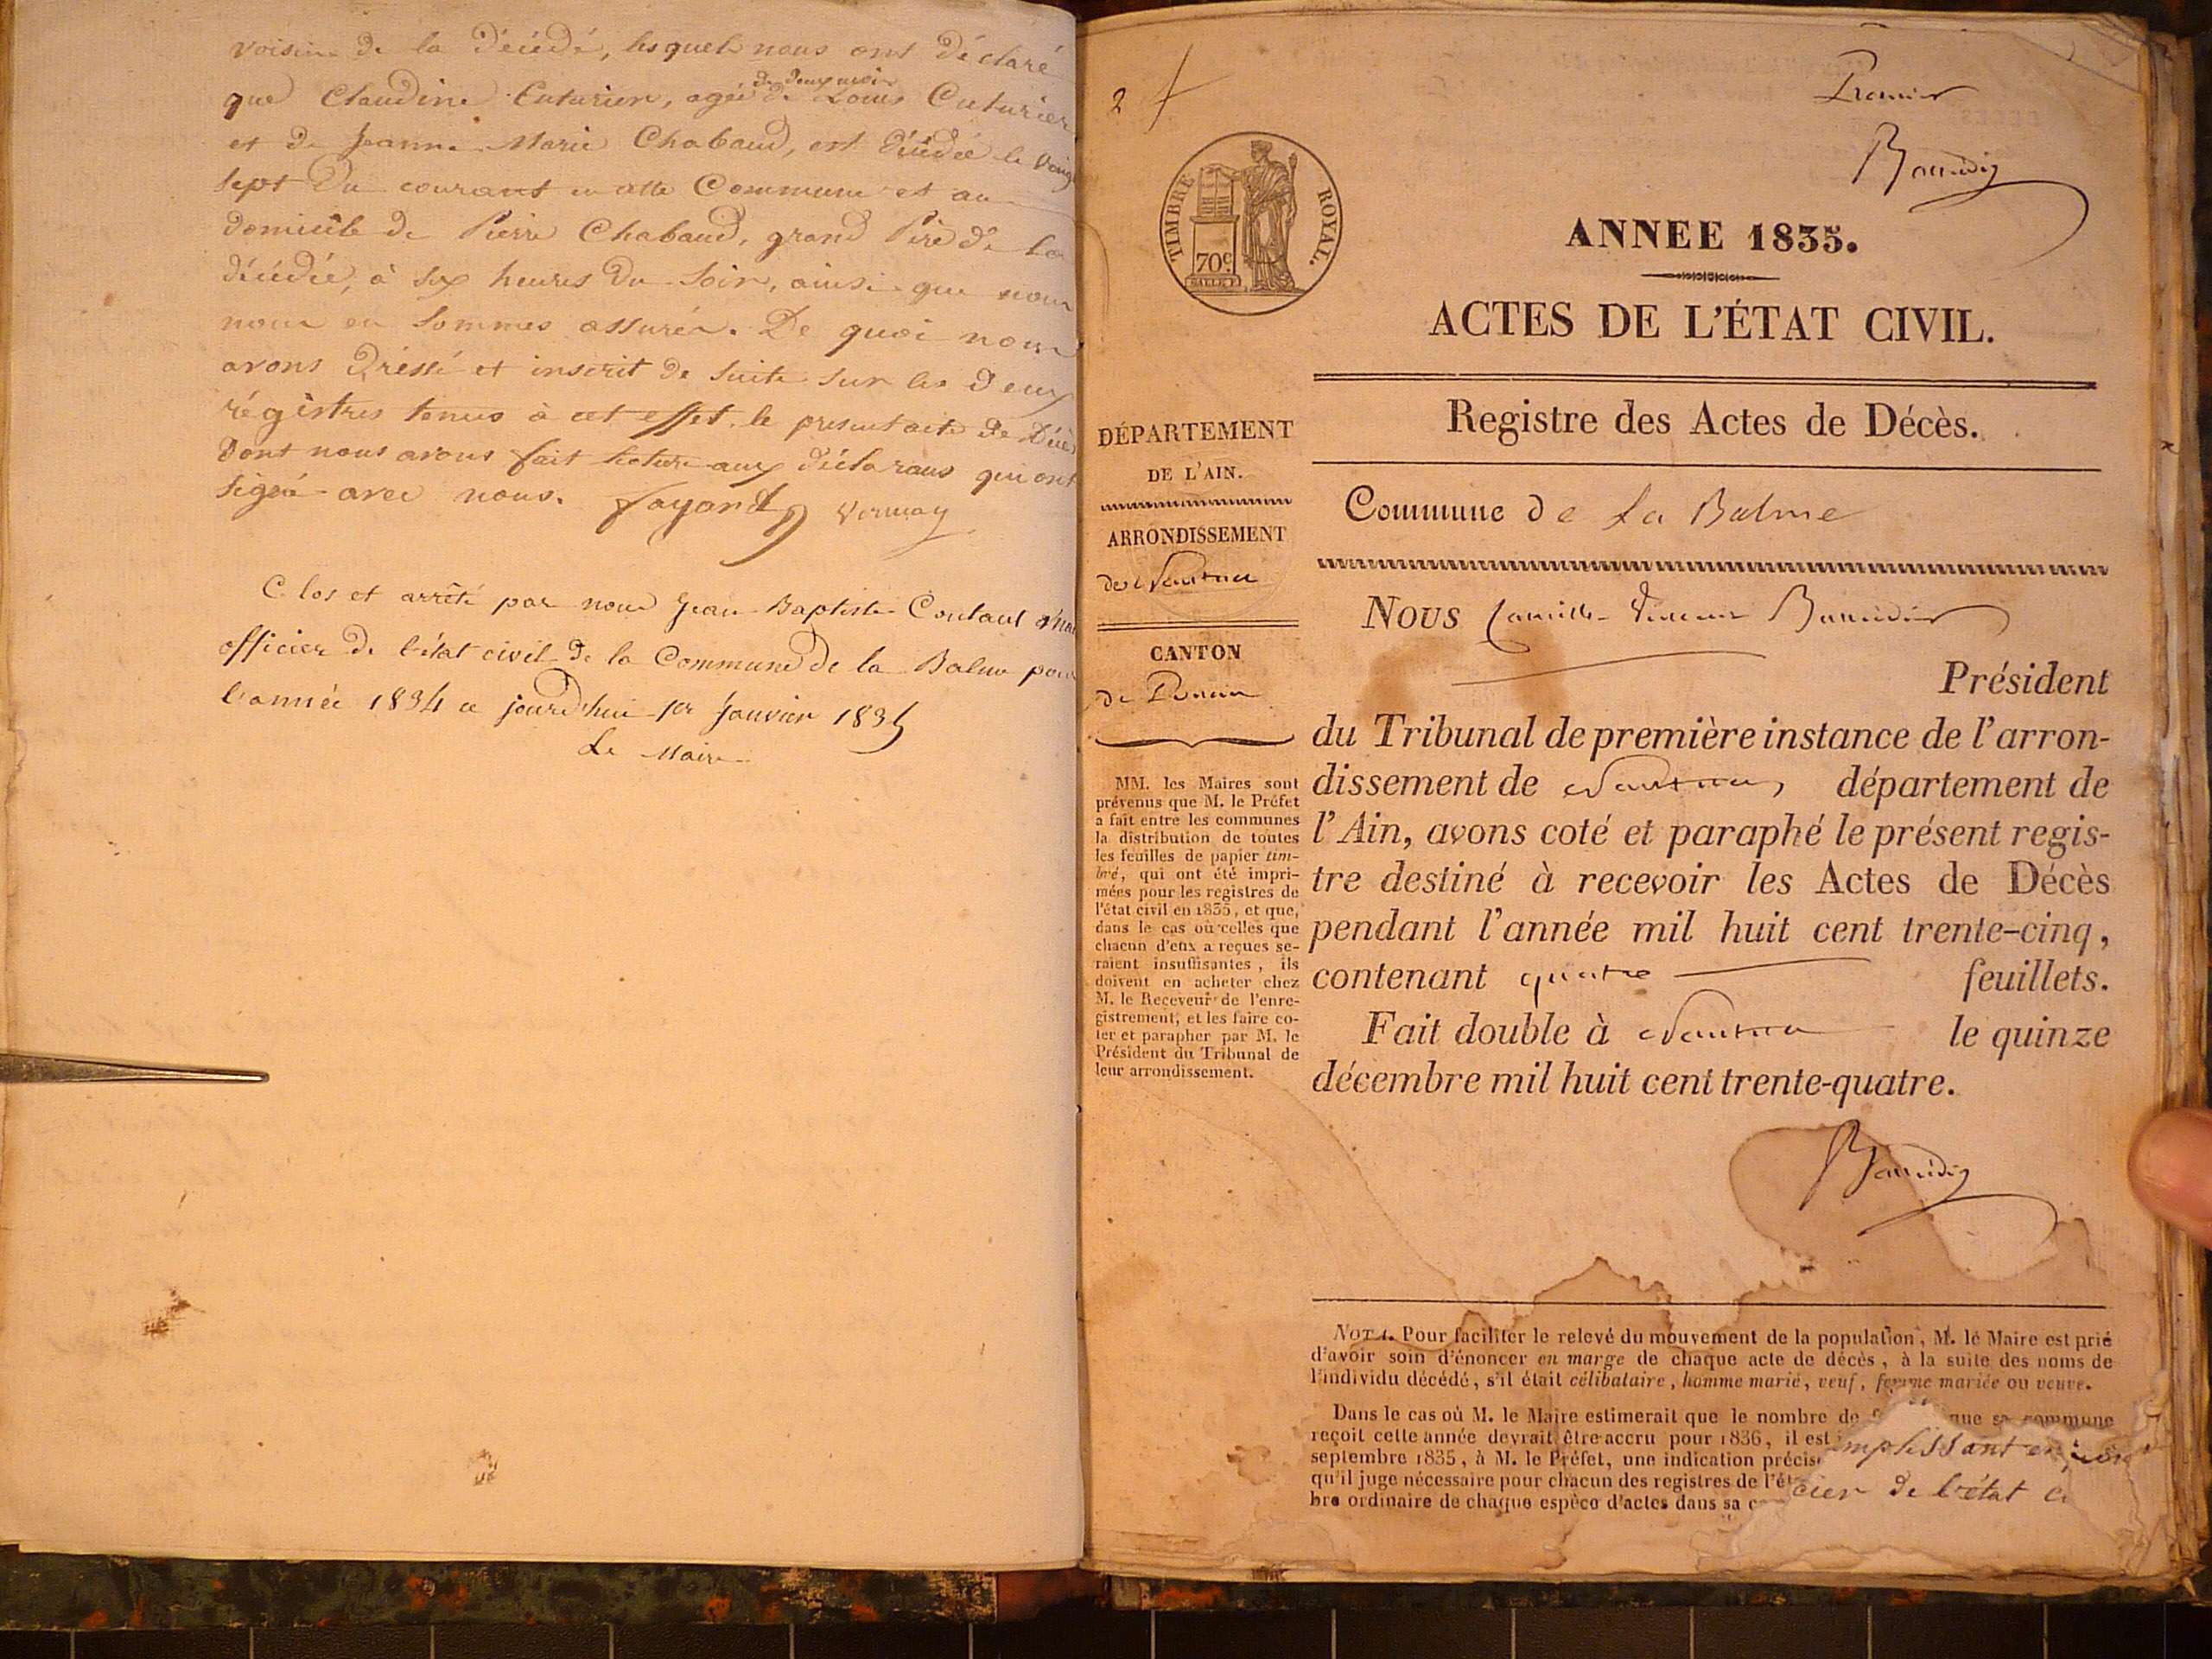 voisins de la décédé, lesquels nous ont déclaré
que Claudine Cuturier, agée de deux mois de Louis Cuturier
et de Jeanne Marie Chabaud, est décédée le vingt
sept du courant en cette Commune et au
domicile de Pierre Chabaud, grand Père de la
décédée, à six heures du soir, ainsi que nous
nous en sommes assurés. De quoi nous
avons dréssé et inscrit de suite sur les deux
régistres tenus à cet effet, le présent acte de Décès
dont nous avons fait lecture aux déclarans qui ont
signé avec nous. Fayard Vernay
Clos et arrêté par nous Jean Baptiste
officier de l'état civil de la Commune de la Balme pour
l'année 1834 ce jourd'hui 1er Janvier 1835
Le Maire
2
Premier
TIMBRE ROYAL.
70c
ANNEE 1835.
ACTES DE L'ÉTAT CIVIL.
Registre des Actes de Décès.
Commune de La Balme
DÉPARTEMENT
DE L'AIN.
ARRONDISSEMENT
de Nantua
CANTON
de Poncin
MM. les Maires sont
prévenus que M. le Préfet
a fait entre les communes
la distribution de toutes
les feuilles de papier tim-
bré, qui ont été impri-
mées pour les registres de
l'état civil en 1835, et que,
dans le cas où celles que
chacun d'eux a reçues se-
raient insuffisantes, ils
doivent en acheter chez
M. le Receveur de l'enre-
gistrement, et les faire co-
ter et parapher par M. le
Président du Tribunal de
leur arrondissement.
Nous Camille
Président
du Tribunal de première instance de l'arron-
dissement de Nantua, département de
l'Ain, avons coté et paraphé le présent regis-
tre destiné à recevoir les Actes de Décès
pendant l'année mil huit cent trente-cinq,
contenant quatre feuillets.
Fait double à Nantua le quinze
décembre mil huit cent trente-quatre.
NOTA. Pour faciliter le relevé du mouvement de la population, M. le Maire est prié
d'avoir soin d'énoncer en marge de chaque acte de décès, à la suite des noms de
l'individu décédé, s'il était célibataire, homme marié, veuf, femme mariée ou veuve.
Dans le cas où M. le Maire estimerait que le nombre de que sa commune
reçoit cette année devrait être accru pour 1836, il est
septembre 1835, à M. le Préfet, une indication précise
qu'il juge nécessaire pour chacun des registres de l'ét
bre ordinaire de chaque espèce d'actes dans sa c
mplissant
cier de l'état ci